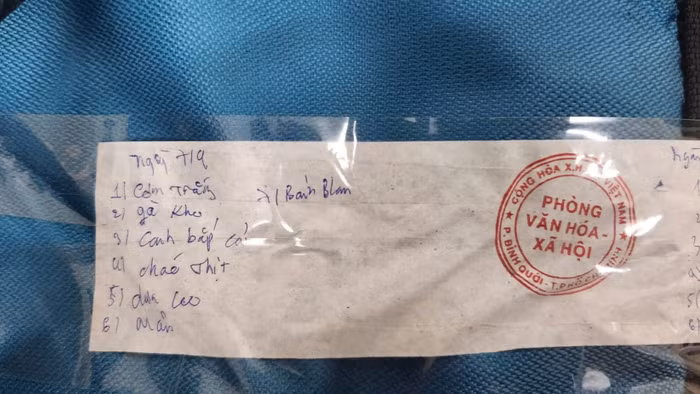 Ngày 7/9
1) Cơm Trắng
2) gà kho
3) Canh bắp cải
4) cháo Thịt
5) dưa leo
6) Mận
7) Bánh Blan
CỘNG HÒA X.H. VIỆT NAM
PHÒNG
VĂN HÓA-
XÃ HỘI
P. BÌNH QUỚI - T.PHỐ
Ngà
5)
6)